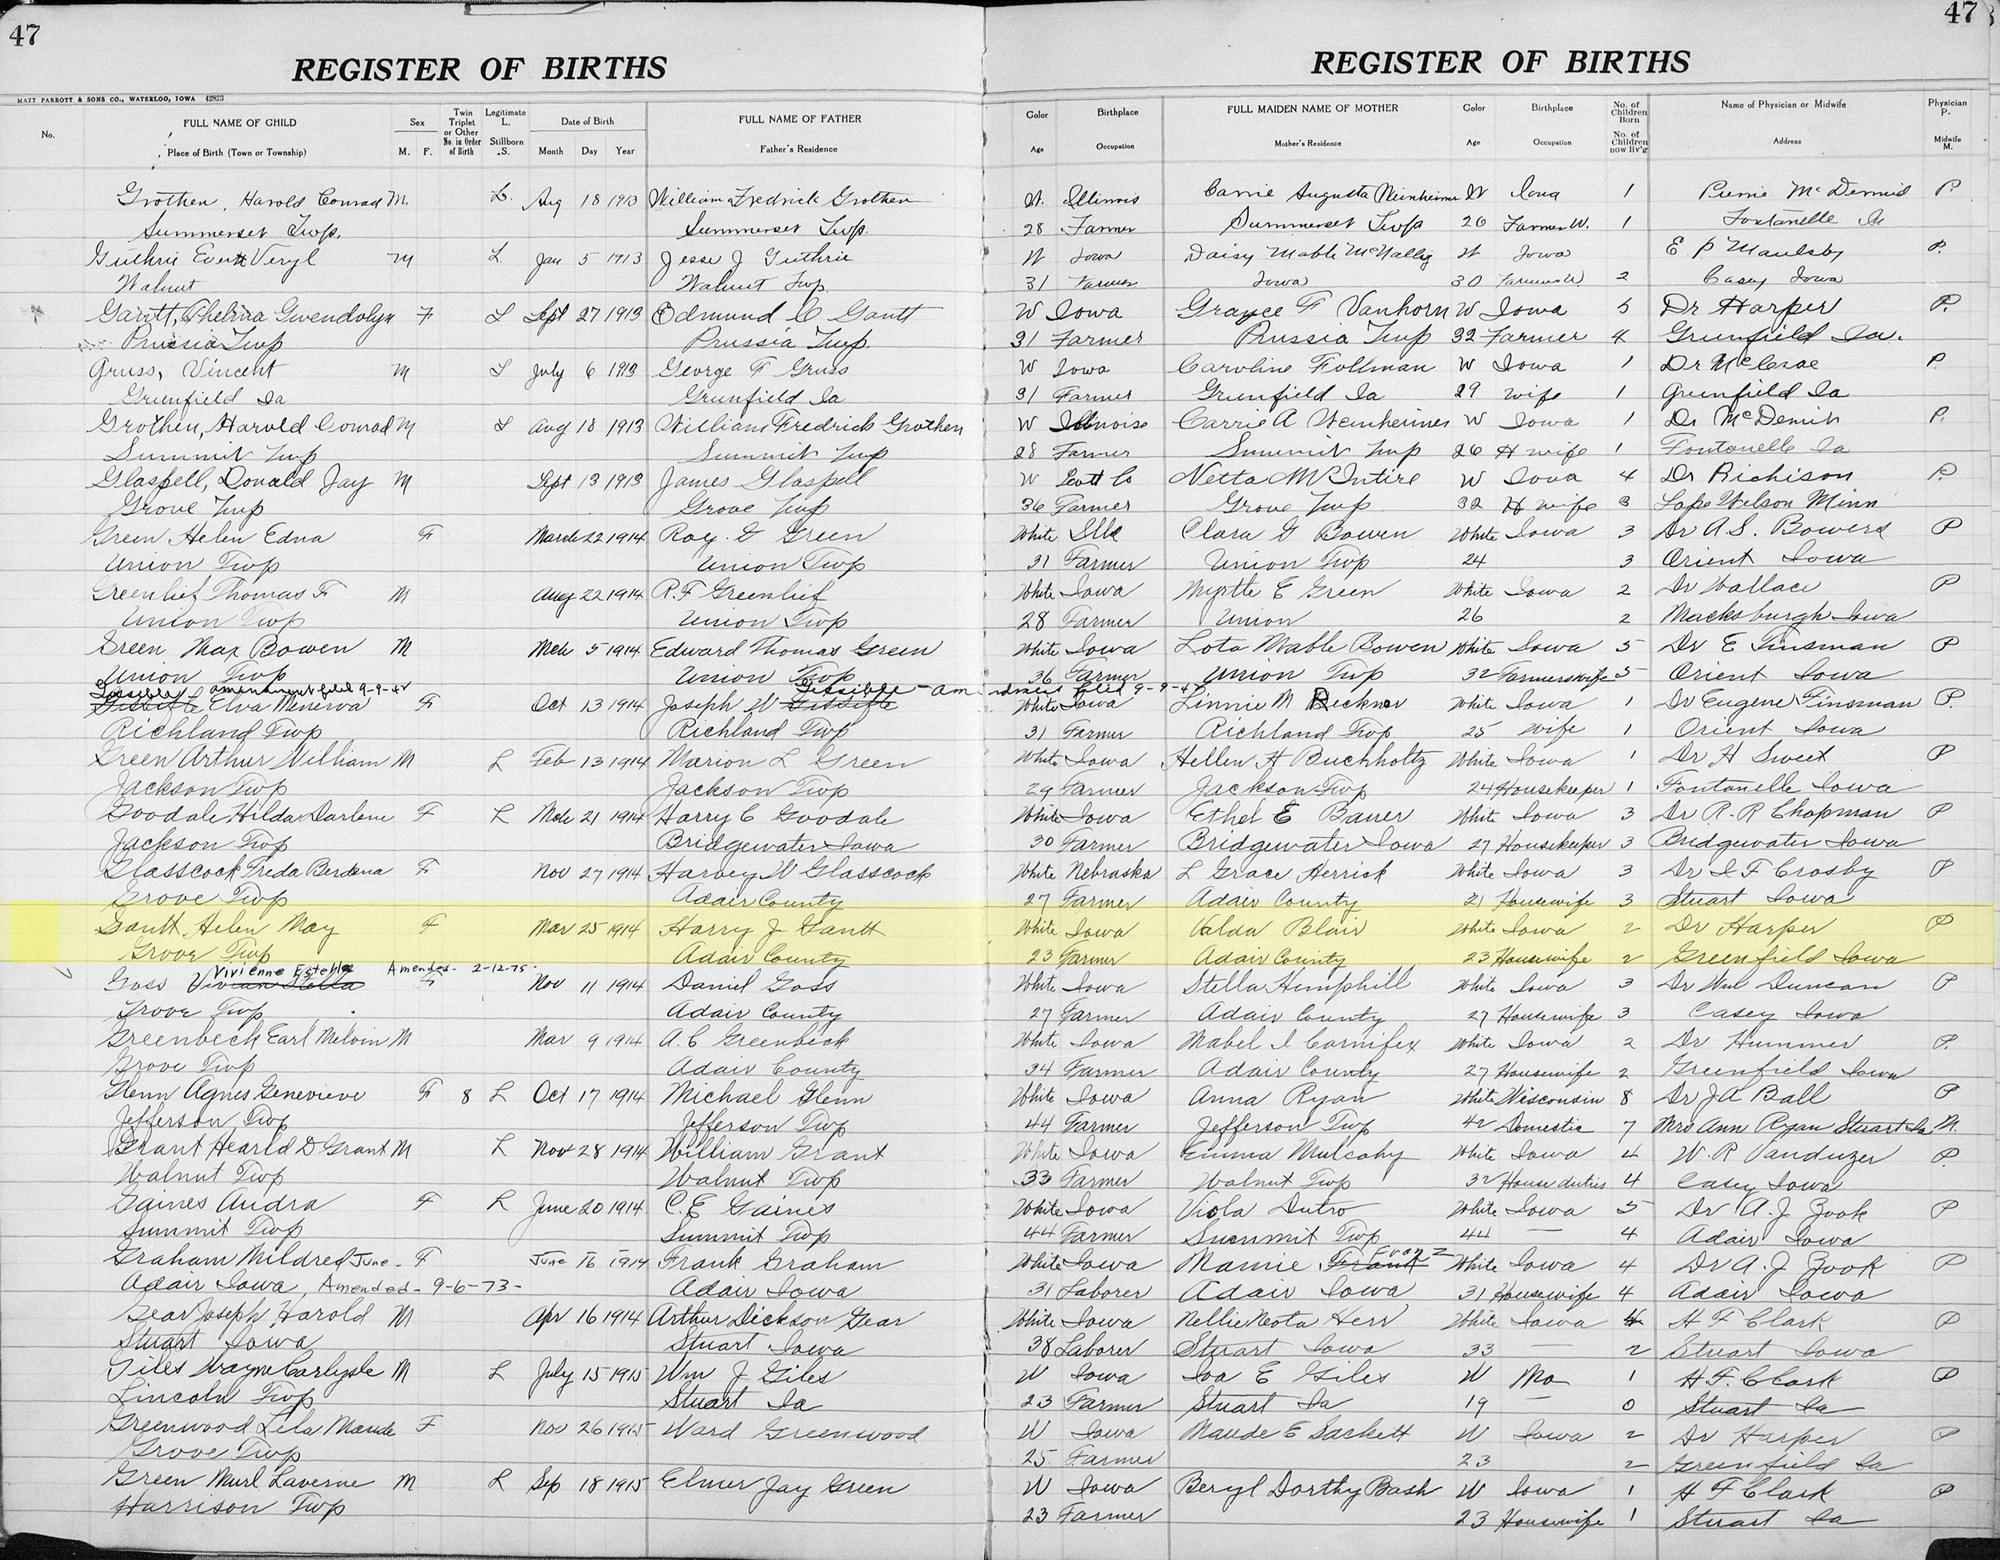 47
47
REGISTER OF BIRTHS
REGISTER OF BIRTHS
MATT PARROTT & SONS CO., WATERLOO, IOWA 42823
No. FULL NAME OF CHILD Sex Twin Triplet or Other No. in Order of Birth Legitimate L. Date of Birth FULL NAME OF FATHER Color Birthplace FULL MAIDEN NAME OF MOTHER Color Birthplace No. of Children Born Name of Physician or Midwife Physician P.
Place of Birth (Town or Township) M. F. Stillborn S. Month Day Year Father's Residence Age Occupation Mother's Residence Age Occupation No. of Children now liv'g Address Midwife M.
Grothen, Harold Conrad M. L. Aug 18 1913 William Fredrick Grothen W. Illinois Carrie Augusta W Iowa 1 McDermid P.
Summerset Twp. Summerset Twp. 28 Farmer Summerset Twp 26 Farmer W. 1 Fontanelle Ia
Guthrie Everett Veryl M L. Jan 5 1913 Jesse J Guthrie W Iowa Daisy Mable McNalley W Iowa E P Maulsby P.
Walnut Walnut Twp. 31 Farmer Iowa 30 Farmers W 2 Casey Iowa
Gantt, Thelma Gwendolyn F L Sept 27 1913 Edmund C Gantt W Iowa Grayce F Vanhorn W Iowa 5 Dr Harper P.
Prussia Twp Prussia Twp. 31 Farmer Prussia Twp 32 Farmer 4 Greenfield Ia.
Gruss, Vincent M L July 6 1913 George F Gruss W Iowa Caroline Follman W Iowa 1 Dr P.
Greenfield Ia Greenfield Ia 31 Farmer Greenfield Ia 29 wife 1 Greenfield Ia
Grothen, Harold Conrad M L Aug 18 1913 William Fredrick Grothen W Illinoise Carrie A W Iowa 1 Dr McDemit P.
Summit Twp Summit Twp 28 Farmer Summit Twp 26 H wife 1 Fontanelle Ia
Glaspell, Donald Jay M Sept 13 1913 James Glaspell W Scott Co Netta McIntire W Iowa 4 Dr Richison P.
Grove Twp Grove Twp 36 Farmer Grove Twp 32 H wife 3 Lake Wilson Minn
Green Helen Edna F March 22 1914 Roy G Green White Ills Clara G Bowen White Iowa 3 Dr A.S. Bowers P
Union Twp Union Twp 31 Farmer Union Twp 24 3 Orient Iowa
Greenlief Thomas F M Aug 22 1914 R.F Greenlief White Iowa Myrtle E Green White Iowa 2 Dr Wallace P
Union Twp Union Twp 28 Farmer Union 26 2 Macksburgh Iowa
Green Max Bowen M Mch 5 1914 Edward Thomas Green White Iowa Lota Mable Bowen White Iowa 5 Dr E Tinsman P
Union Twp Union Twp 36 Farmer Union Twp 32 Farmerswife 5 Orient Iowa
amendment filed 9-9-42 - amendment filed 9-9-42
Elva Minerva F Oct 13 1914 Joseph W White Iowa Linnie M White Iowa 1 Dr Eugene Tinsman P.
Richland Twp Richland Twp 31 Farmer Richland Twp 25 Wife 1 Orient Iowa
Green Arthur William M L Feb 13 1914 Marion L Green White Iowa Hellen H Buchholtz White Iowa 1 Dr H Sweet P
Jackson Twp Jackson Twp 29 Farmer Jackson Twp 24 Housekeeper 1 Fontanelle Iowa
Goodale Hilda Darlene F L Mch 21 1914 Harry C Goodale White Iowa Ethel E Bauer White Iowa 3 Dr R.R Chapman P
Jackson Twp Bridgewater Iowa 30 Farmer Bridgewater Iowa 27 Housekeeper 3 Bridgewater Iowa
Glasscock Freda Berdena F Nov 27 1914 Harvey W Glasscock White Nebraska L Grace Herrick White Iowa 3 Dr I F Crosby P
Grove Twp Adair County 27 Farmer Adair County 21 Housewife 3 Stuart Iowa
Gantt Helen May F Mar 25 1914 Harry J Gantt White Iowa Valda Blair White Iowa 2 Dr Harper P
Grove Twp Adair County 23 Farmer Adair County 23 Housewife 2 Greenfield Iowa
Vivienne Estella Amended - 2-12-75.
Goss Vivian Stella F Nov 11 1914 Daniel Goss White Iowa Stella Hemphill White Iowa 3 Dr Wm Duncan P
Grove Twp Adair County 27 Farmer Adair County 27 Housewife 3 Casey Iowa
Greenbeck Earl Melvin M Mar 9 1914 A.C Greenbeck White Iowa Mabel I Carnifex White Iowa 2 Dr Hummer P.
Grove Twp Adair County 34 Farmer Adair County 27 Housewife 2 Greenfield Iowa
Glenn Agnes Genevieve F 8 L Oct 17 1914 Michael Glenn White Iowa Anna Ryan White Wisconsin 8 Dr J A Ball P
Jefferson Twp Jefferson Twp 44 Farmer Jefferson Twp 42 Domestic 7 Mrs Ann Ryan Stuart Ia M.
Grant Hearld D Grant M L Nov 28 1914 William Grant White Iowa Emma Mulcahy White Iowa 4 W.R Vanduzer P.
Walnut Twp Walnut Twp 33 Farmer Walnut Twp 32 House duties 4 Casey Iowa
Gaines Audra F L June 20 1914 C.E Gaines White Iowa Viola Dutro White Iowa 5 Dr A.J Zook P
Summit Twp Summit Twp 44 Farmer Summit Twp 44 — 4 Adair Iowa
Evans
Graham Mildred June - F June 16 1914 Frank Graham White Iowa Mamie Frank White Iowa 4 Dr A.J Zook P
Adair Iowa, Amended - 9-6-73 - Adair Iowa 31 Laborer Adair Iowa 31 Housewife 4 Adair Iowa
Gear Joseph Harold M Apr 16 1914 Arthur Dickson Gear White Iowa Nellie Neota Herr White Iowa 4 H F Clark P
Stuart Iowa Stuart Iowa 38 Laborer Stuart Iowa 33 — 2 Stuart Iowa
Giles Wayne Carlysle M L July 15 1915 Wm J Giles W Iowa Iva E Giles W Mo 1 H.F. Clark P
Lincoln Twp Stuart Ia 23 Farmer Stuart Ia 19 — 0 Stuart Ia
Greenwood Lela Maude F Nov 26 1915 Ward Greenwood W Iowa Maude E Sackett W Iowa 2 Dr Harper P
Grove Twp 25 Farmer 23 2 Greenfield Ia
Green Murl Laverne M L Sep 18 1915 Elmer Jay Green W Iowa Beryl Dorthy Bash W Iowa 1 H F Clark P
Harrison Twp 23 Farmer 23 Housewife 1 Stuart Ia